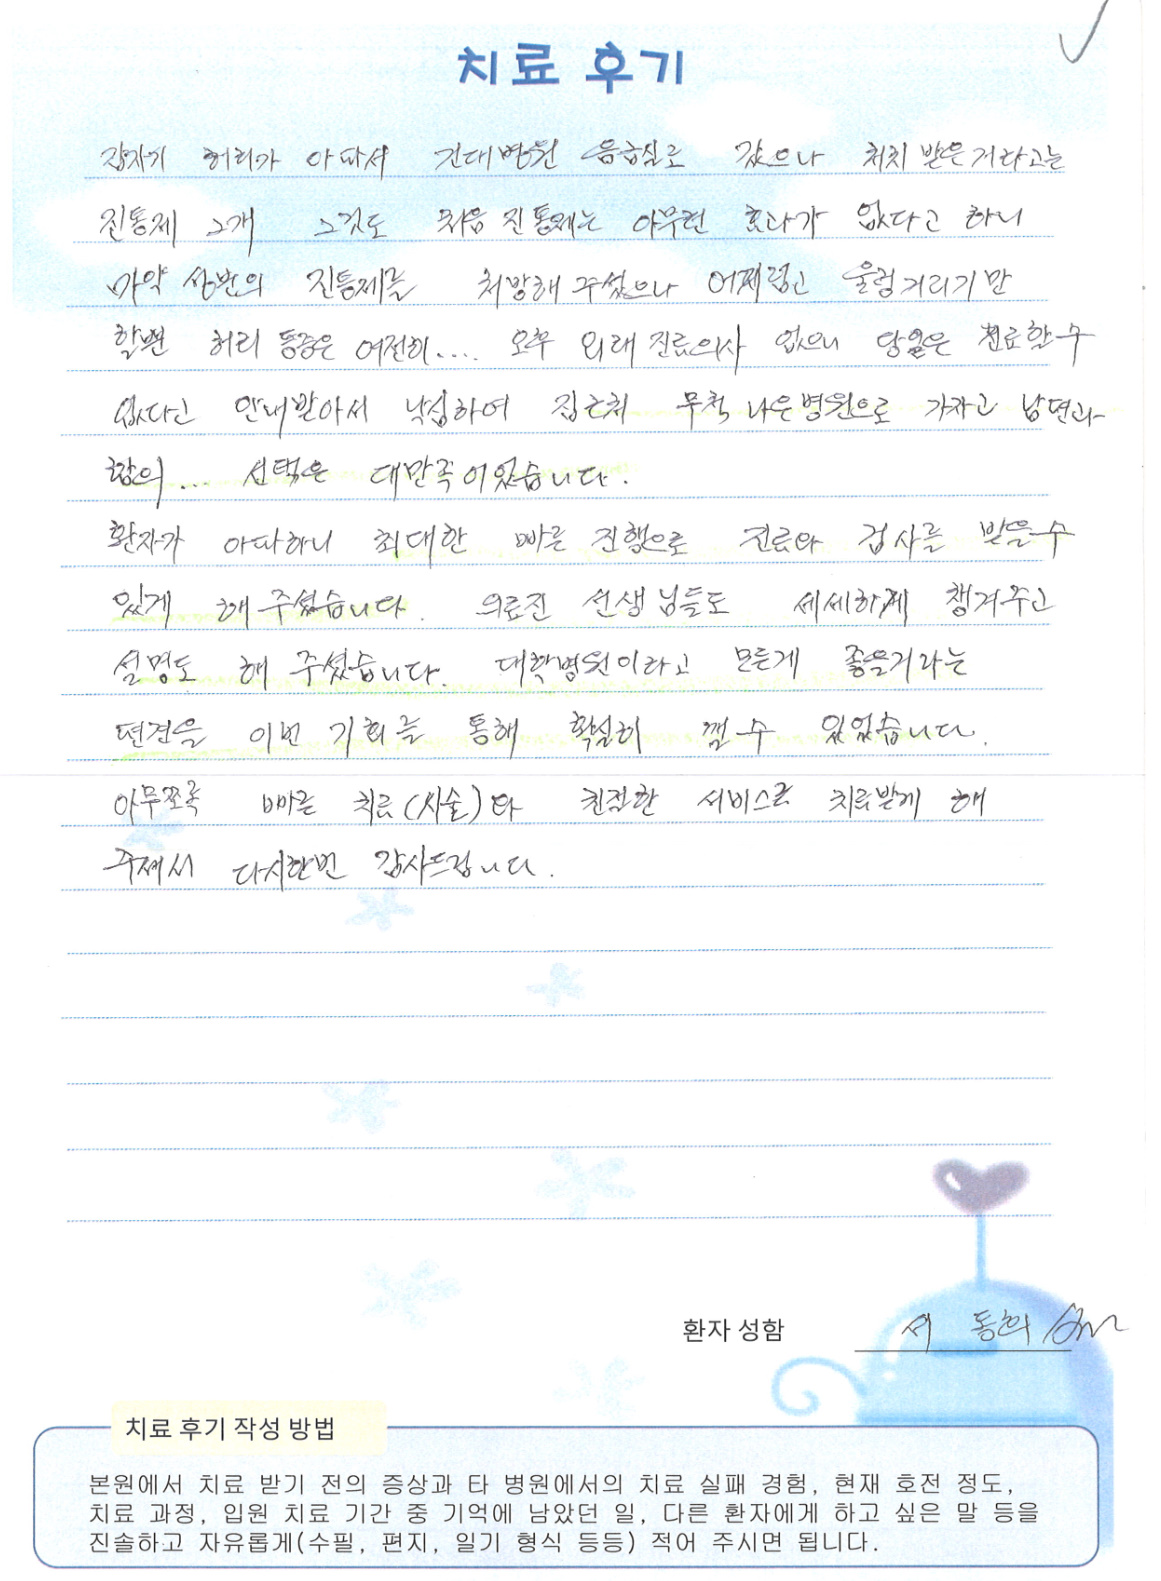 치료 후기
갑자기 허리가 아파서 건대병원 응급실로 갔으나 처치 받은거라고는
진통제 2개 그것도 처음 진통제는 아무런 효과가 없다고 하니
마약 성분의 진통제를 처방해 주셨으나 어찌럽고 울렁거리기만
할뿐 허리 통증은 여전히.... 오후 외래 진료의사 없으니 당일은 진료할수
없다고 안내받아서 낙심하여 집근처 무척 나은병원으로 가자고 남편과
합의... 선택은 대만족이었습니다.
환자가 아파하니 최대한 빠른 진행으로 진료와 검사를 받을수
있게 해 주셨습니다. 의료진 선생님들도 세세하게 챙겨주고
설명도 해 주셨습니다. 대학병원이라고 모든게 좋을거라는
편견을 이번 기회를 통해 확실히 깰 수 있었습니다.
아무쪼록 빠른 치료(시술)와 친절한 서비스로 치료받게 해
주셔서 다시한번 감사드립니다.
환자 성함 서 동희
치료 후기 작성 방법
본원에서 치료 받기 전의 증상과 타 병원에서의 치료 실패 경험, 현재 호전 정도,
치료 과정, 입원 치료 기간 중 기억에 남았던 일, 다른 환자에게 하고 싶은 말 등을
진솔하고 자유롭게(수필, 편지, 일기 형식 등등) 적어 주시면 됩니다.